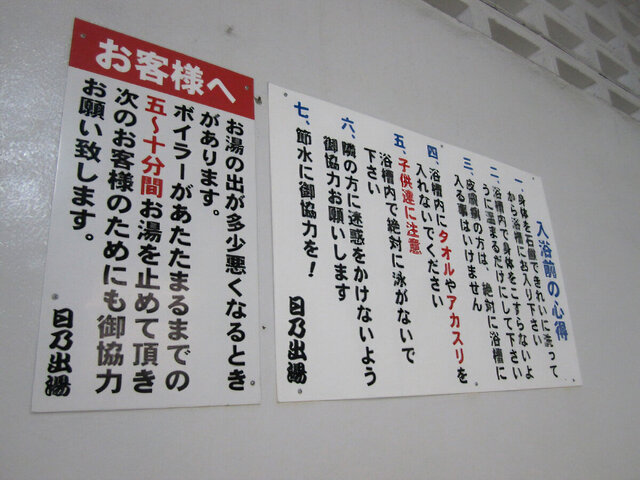 お客様へ
お湯の出が多少悪くなるとき
があります。
ボイラーがあたたまるまでの
五〜十分間お湯を止めて頂き
次のお客様のためにも御協力
お願い致します。
日乃出湯
入浴前の心得
一、身体を石鹸できれいに洗って
から浴槽にお入り下さい
二、浴槽内で身体をこすらないよ
うに温まるだけにして下さい
三、皮膚病の方は、絶対に浴槽に
入る事はいけません
四、浴槽内にタオルやアカスリを
入れないでください
五、子供達に注意
浴槽内で絶対に泳がないで
下さい
六、隣の方に迷惑をかけないよう
御協力お願いします
七、節水に御協力を!
日乃出湯